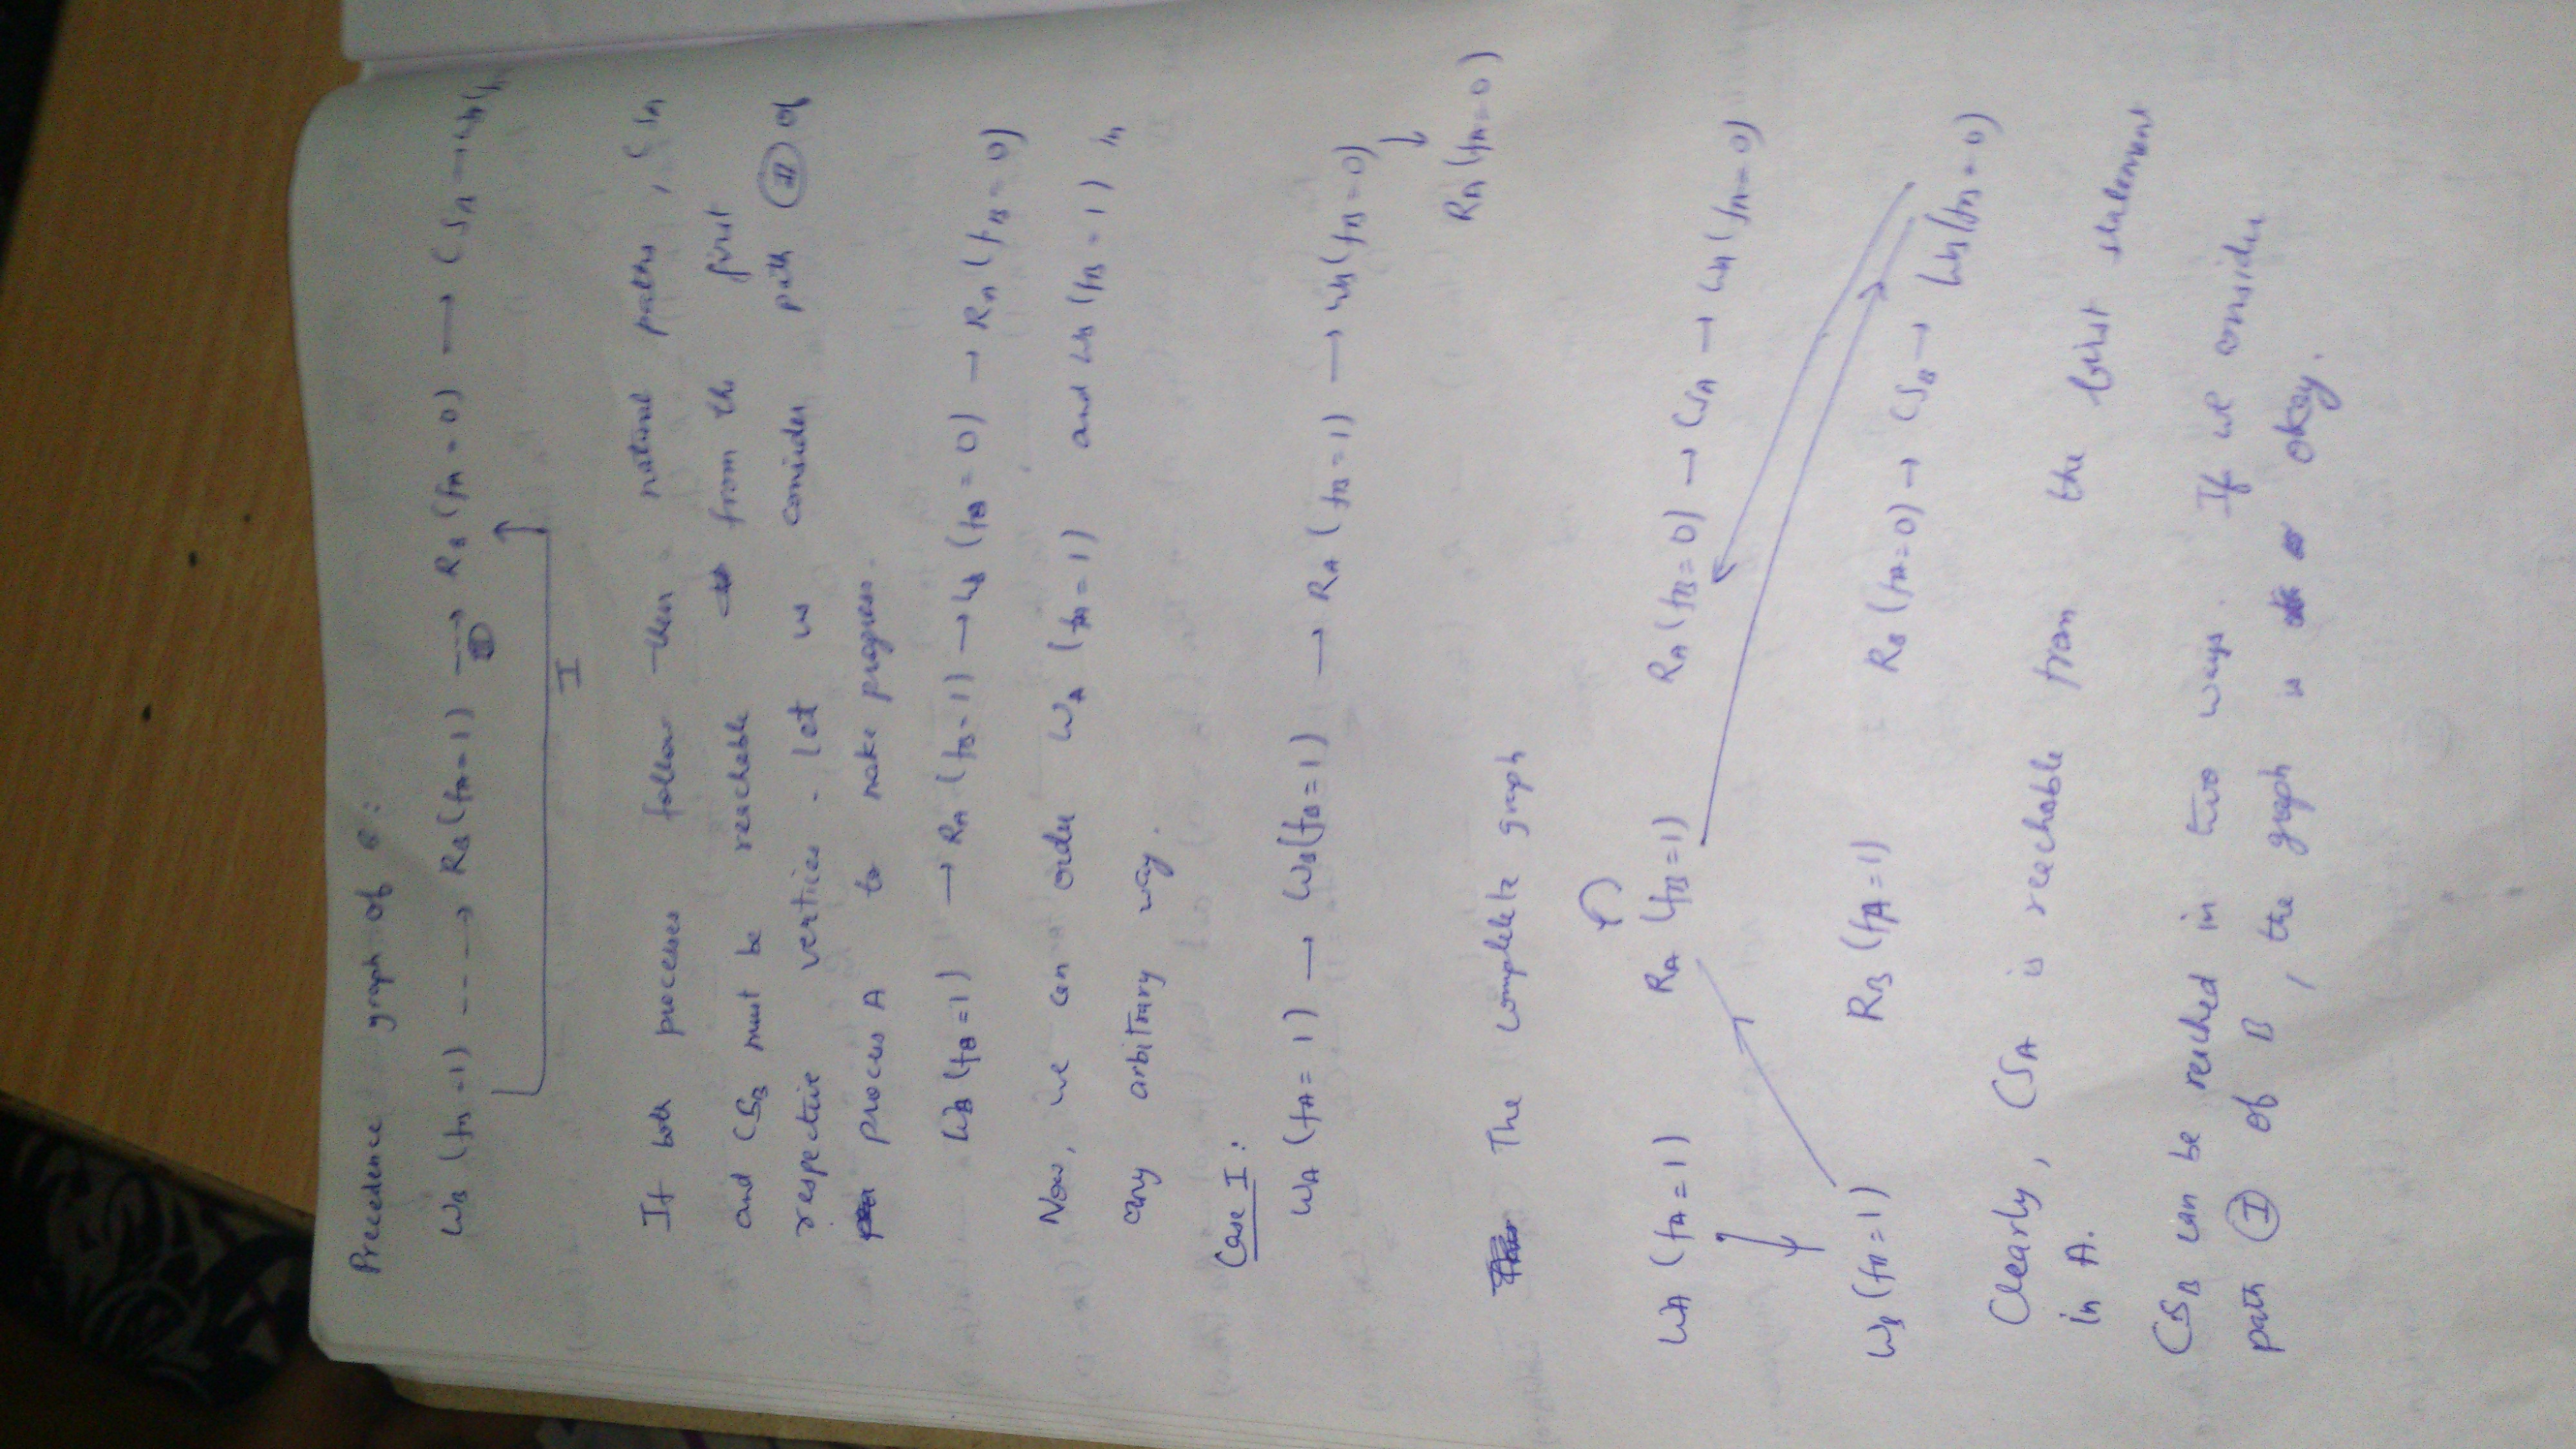 Precedence graph of B:
WB (fB=1) ---→ RB(fA=1) → RB (fA=0) → CSA →
II
I
If both processes follow then natural paths, CSA
and CSB must be reachable from the first
respective vertices. Let us consider path II of
process A to make progress.
WB (fB=1) → RA (fB=1) → WB (fB=0) → RA (fB=0)
Now, we can order WA (fA=1) and WB (fB=1) in
any arbitrary way.
Case I:
WA (fA=1) → WB(fB=1) → RA (fB=1) → WB(fB=0)
↓
RA (fA=0)
The complelete graph
WA (fA=1) RA (fB=1) RA (fB=0) → CSA → WA (fA=0)
WB (fB=1) RB (fA=1) RB (fA=0) → CSB → WB (fB=0)
Clearly, CSA is reachable from the first statement
in A.
CSB can be reached in two ways. If we consider
path I of B, the graph is okay.